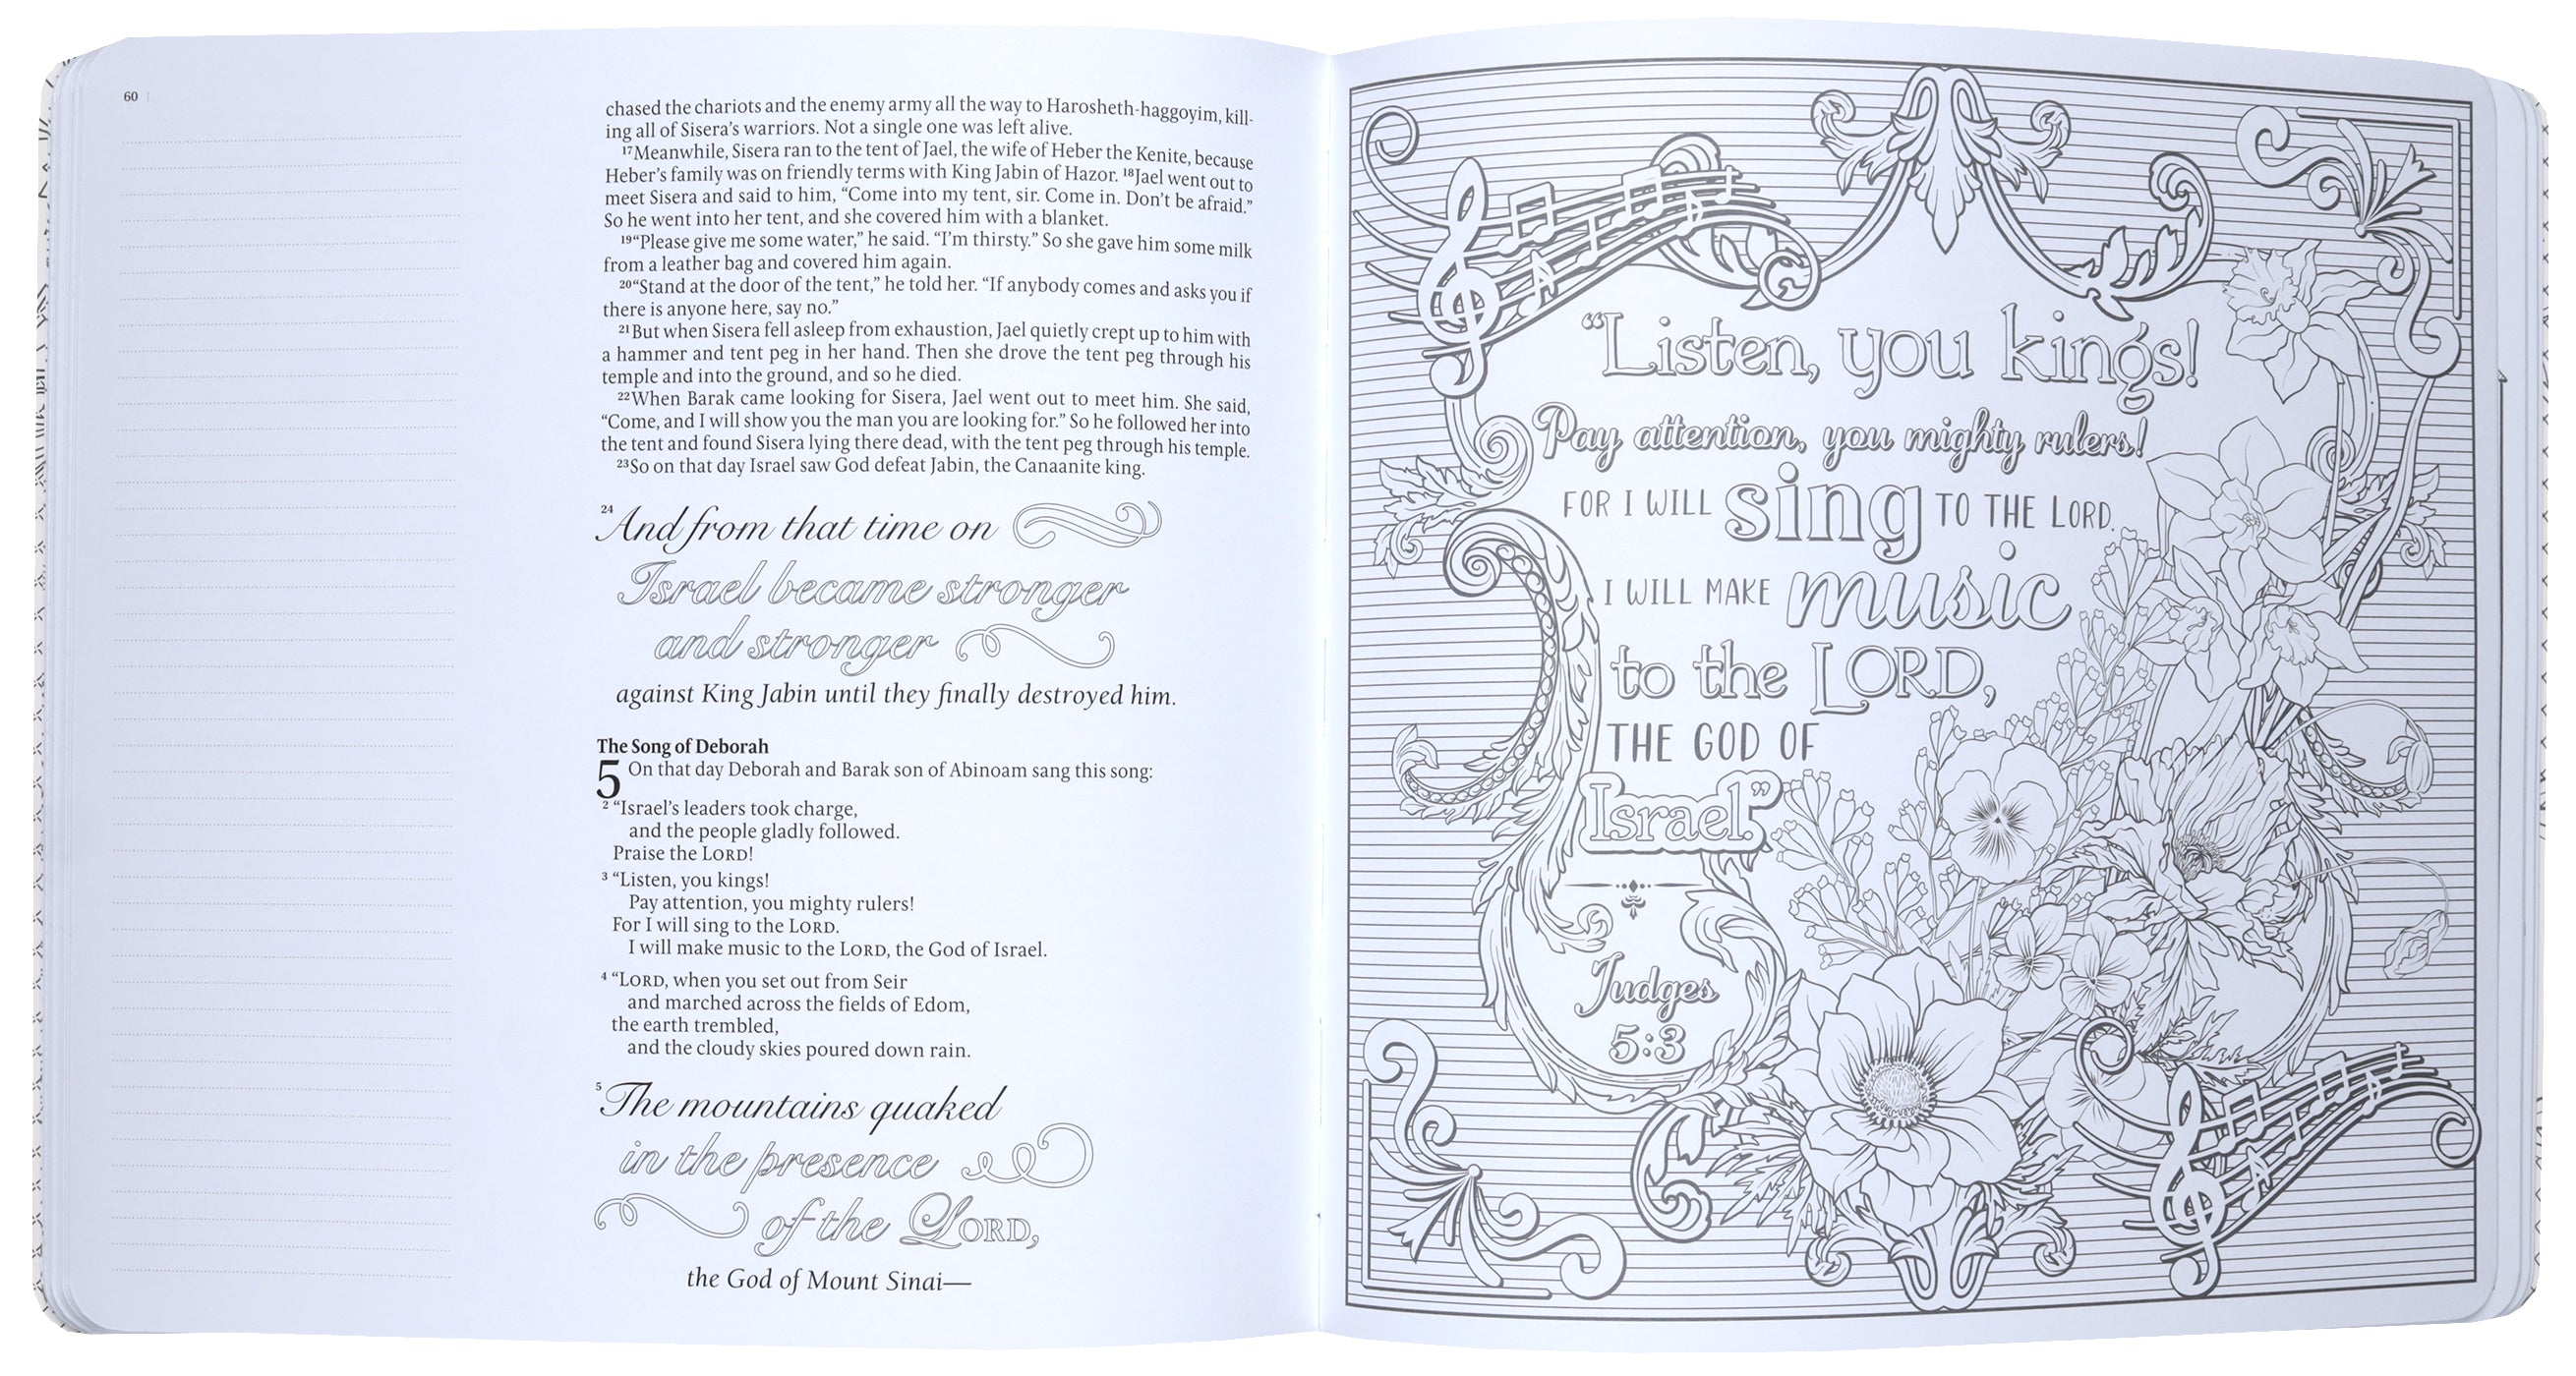 60
chased the chariots and the enemy army all the way to Harosheth-haggoyim, kill-
ing all of Sisera's warriors. Not a single one was left alive.
17Meanwhile, Sisera ran to the tent of Jael, the wife of Heber the Kenite, because
Heber's family was on friendly terms with King Jabin of Hazor. 18Jael went out to
meet Sisera and said to him, “Come into my tent, sir. Come in. Don't be afraid.”
So he went into her tent, and she covered him with a blanket.
19“Please give me some water,” he said. “I'm thirsty.” So she gave him some milk
from a leather bag and covered him again.
20“Stand at the door of the tent,” he told her. “If anybody comes and asks you if
there is anyone here, say no.”
21But when Sisera fell asleep from exhaustion, Jael quietly crept up to him with
a hammer and tent peg in her hand. Then she drove the tent peg through his
temple and into the ground, and so he died.
22When Barak came looking for Sisera, Jael went out to meet him. She said,
“Come, and I will show you the man you are looking for.” So he followed her into
the tent and found Sisera lying there dead, with the tent peg through his temple.
23So on that day Israel saw God defeat Jabin, the Canaanite king.
24And from that time on
Israel became stronger
and stronger
against King Jabin until they finally destroyed him.
The Song of Deborah
5 On that day Deborah and Barak son of Abinoam sang this song:
2 “Israel's leaders took charge,
and the people gladly followed.
Praise the LORD!
3 “Listen, you kings!
Pay attention, you mighty rulers!
For I will sing to the LORD.
I will make music to the LORD, the God of Israel.
4 “LORD, when you set out from Seir
and marched across the fields of Edom,
the earth trembled,
and the cloudy skies poured down rain.
5The mountains quaked
in the presence
of the LORD,
the God of Mount Sinai—
“Listen, you kings!
Pay attention, you mighty rulers!
FOR I WILL sing TO THE LORD.
I WILL MAKE music
to the LORD,
THE GOD OF
Israel.”
Judges
5:3